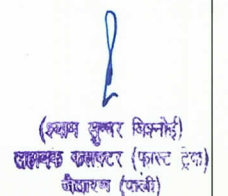 (श्याम सुन्दर बिश्नोई)
सहायक कलक्टर (फास्ट ट्रेक)
जैतारण (पाली)